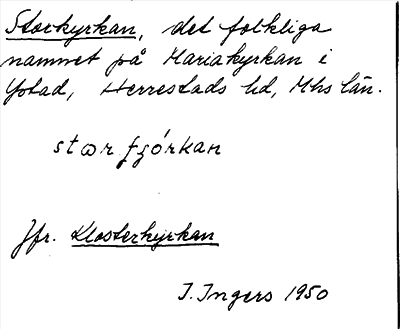 Storkyrkan, det folkliga
namnet på Mariakyrkan i
Ystad, Herrestads hd, Mhs län.
Jfr. Klosterkyrkan
I. Ingers 1950